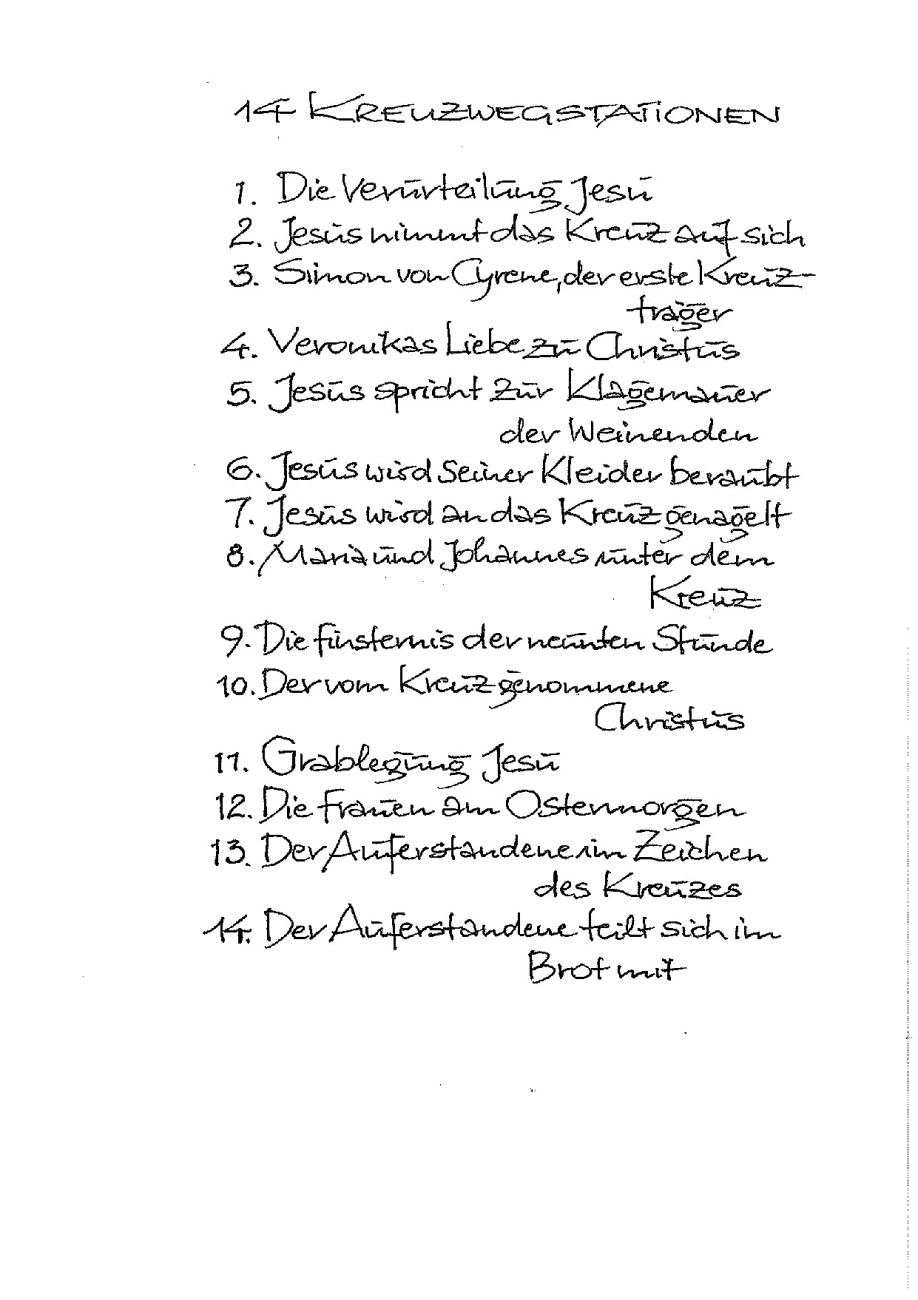 14 KREUZWEGSTATIONEN
1. Die Verurteilung Jesu
2. Jesus nimmt das Kreuz auf sich
3. Simon von Cyrene, der erste Kreuz-
träger
4. Veronikas Liebe zu Christus
5. Jesus spricht zur Klagemauer
der Weinenden
6. Jesus wird Seiner Kleider beraubt
7. Jesus wird an das Kreuz genagelt
8. Maria und Johannes unter dem
Kreuz
9. Die Finsternis der neunten Stunde
10. Der vom Kreuz genommene
Christus
11. Grablegung Jesu
12. Die Frauen am Ostermorgen
13. Der Auferstandene im Zeichen
des Kreuzes
14. Der Auferstandene teilt sich im
Brot mit